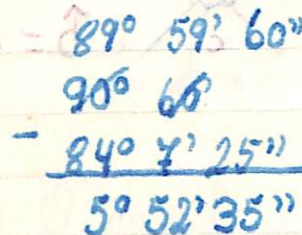 89° 59' 60"
90° 60
- 84° 7' 25"
5° 52' 35"